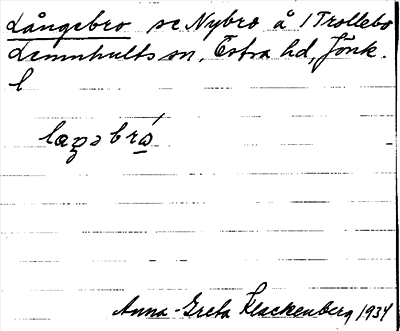 Långebro se Nybro å 1 Trollebo
Lemnhults sn, Östra hd, Jönk.
l
Anna-Greta Klackenberg 1934